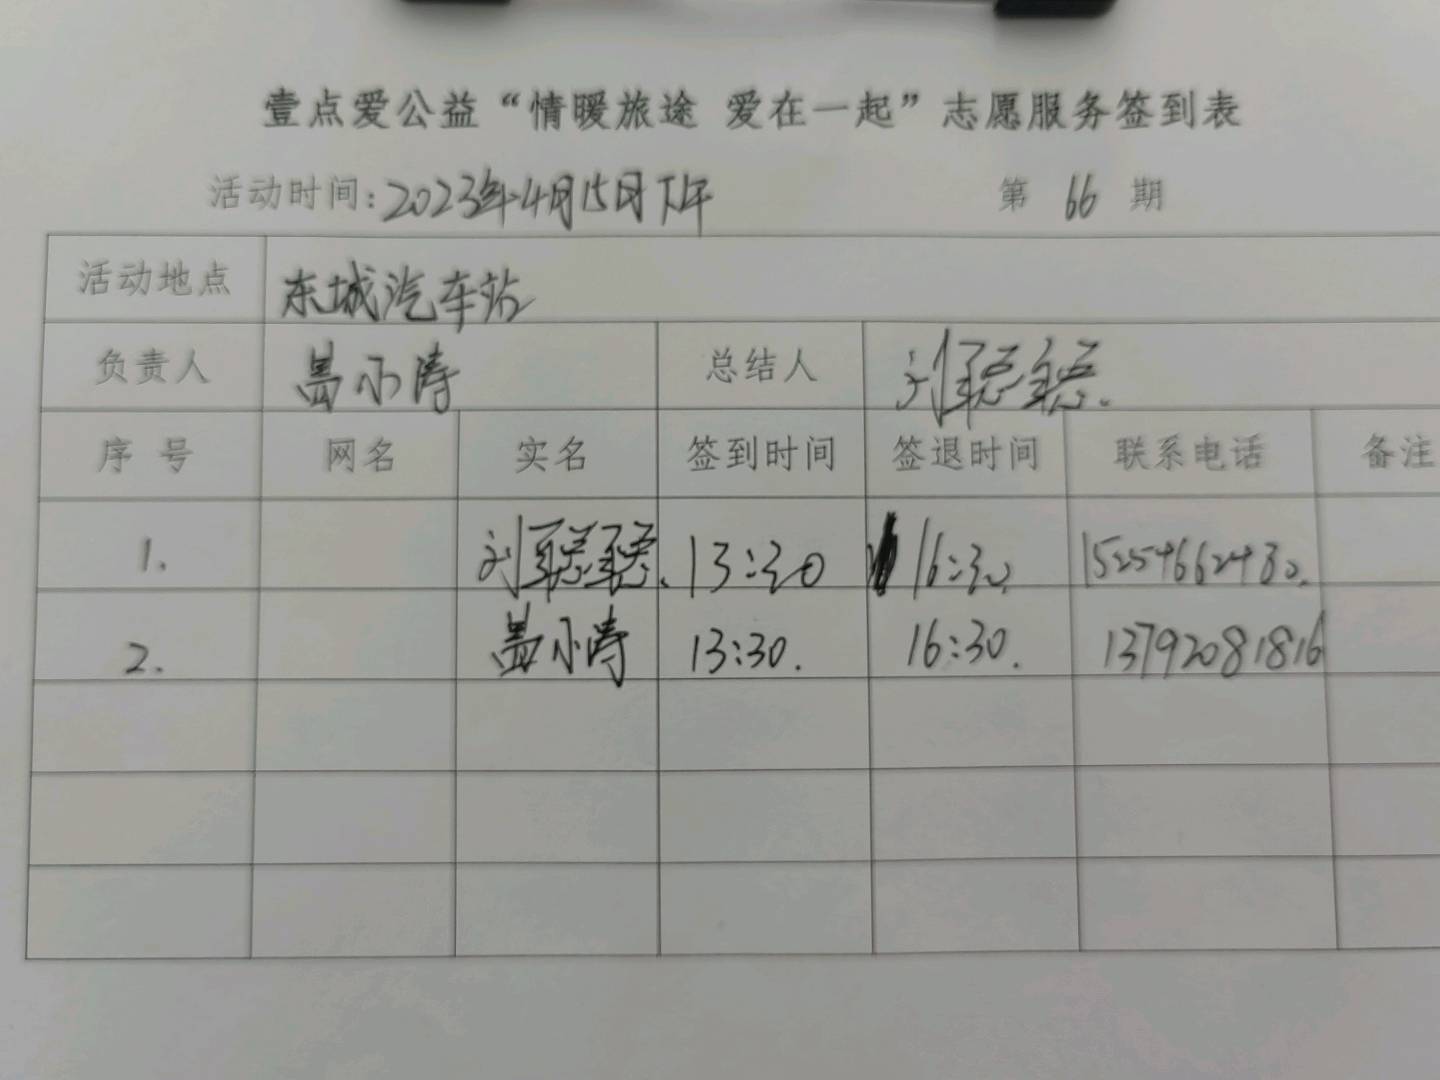 壹点爱公益“情暖旅途 爱在一起”志愿服务签到表
活动时间：2023年4月15日下午 第 66 期
活动地点 东城汽车站
负责人 小涛 总结人 刘聪聪.
序 号 网名 实名 签到时间 签退时间 联系电话 备注
1. 刘聪聪. 13:30 16:30. 15254662480.
2. 小涛 13:30. 16:30. 13792081816